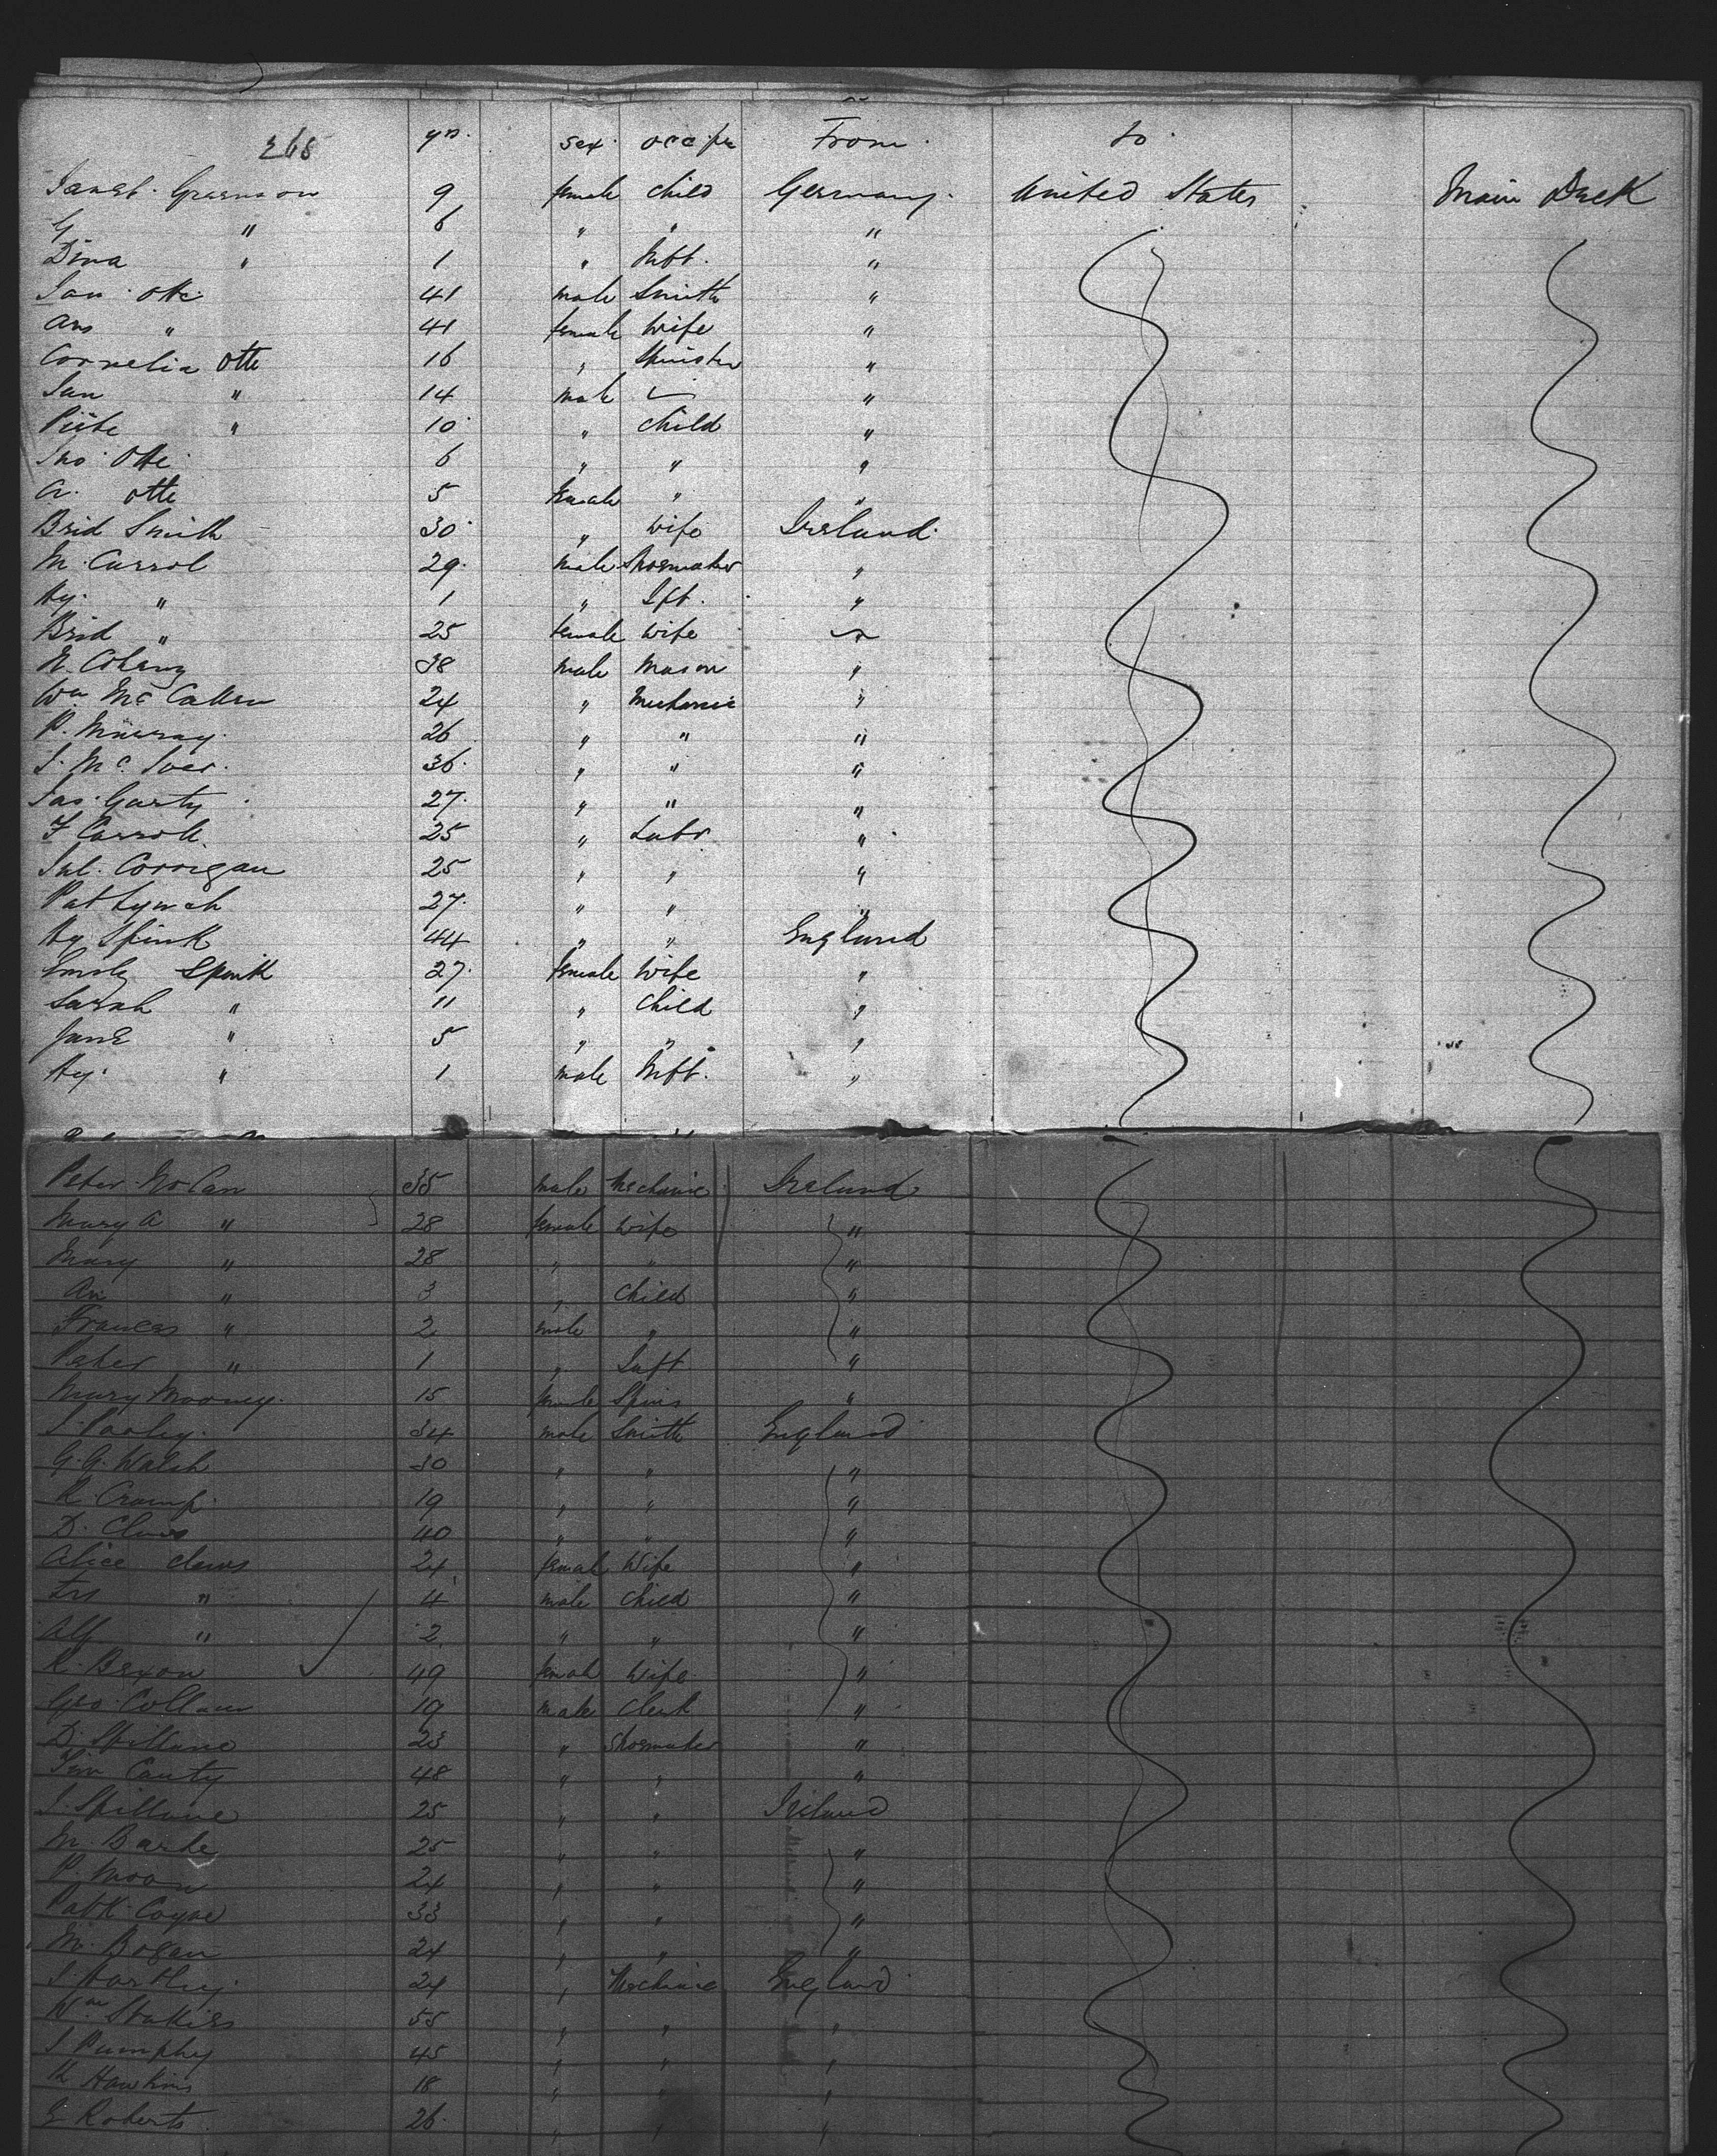 268 yrs. sex. occupn From. to.
Gearmann 9 female child Germany. United States Main Deck
G " 6 " " "
Dina " 1 " Inft. "
Jan Otte 41 male Smith "
Ans " 41 female Wife "
Cornelia Otte 16 " Spinster "
Jan " 14 male "
Piete " 10 " child "
Jno Otte 6 " " "
A. Otte 5 female " "
Brid Smith 30 " wife Ireland.
M. Carrol 29. male Shoemaker "
Hy. " 1 " Ift. "
Brid " 25 female wife "
38 male mason "
Wm McCallen 24 " Mechanic "
P. Murray. 26 " " "
J. McIver. 36. " " "
Jas. Garty 27. " " "
F Carroll. 25 " Labr "
Corrigan 25 " " "
Pat Lynch 27. " " "
Hy Spink 44 " " England
Emily Spink 27. female Wife "
Sarah " 11 " Child "
Jane " 5 " " "
Hy. " 1 male Inft. "
Peter Nolan 35 male Mechanic Ireland
Mary A " 28 female wife "
Mary " 28 " " "
An " 3 " child "
Frances " 2 male " "
Peter " 1 " Inft "
Mary Mooney. 15 female Spins "
J. Pooley. 34 male Smith England
G. G. Walsh 30 " " "
R. Cramp. 19 " " "
D. Claws 40 " " "
Alice Claws 24 female Wife "
" 4 male child "
Alf " 2 " " "
R. Bexon 49 female Wife "
Geo. Collam 19 male Clerk "
D. Spillane 23 " Shoemaker "
Tim Canty 48 " " "
J. Spillane 25 " " Ireland
M. Barke 25 " " "
P. Moon 24 " " "
Patk. Coyne 33 " " "
M. Bogan 24 " " "
J. Hartley. 24 " Mechanic England
Wm 55 " " "
J Pumphey 45 " " "
H Hawkins 18 " " "
G Roberts 26. " " "